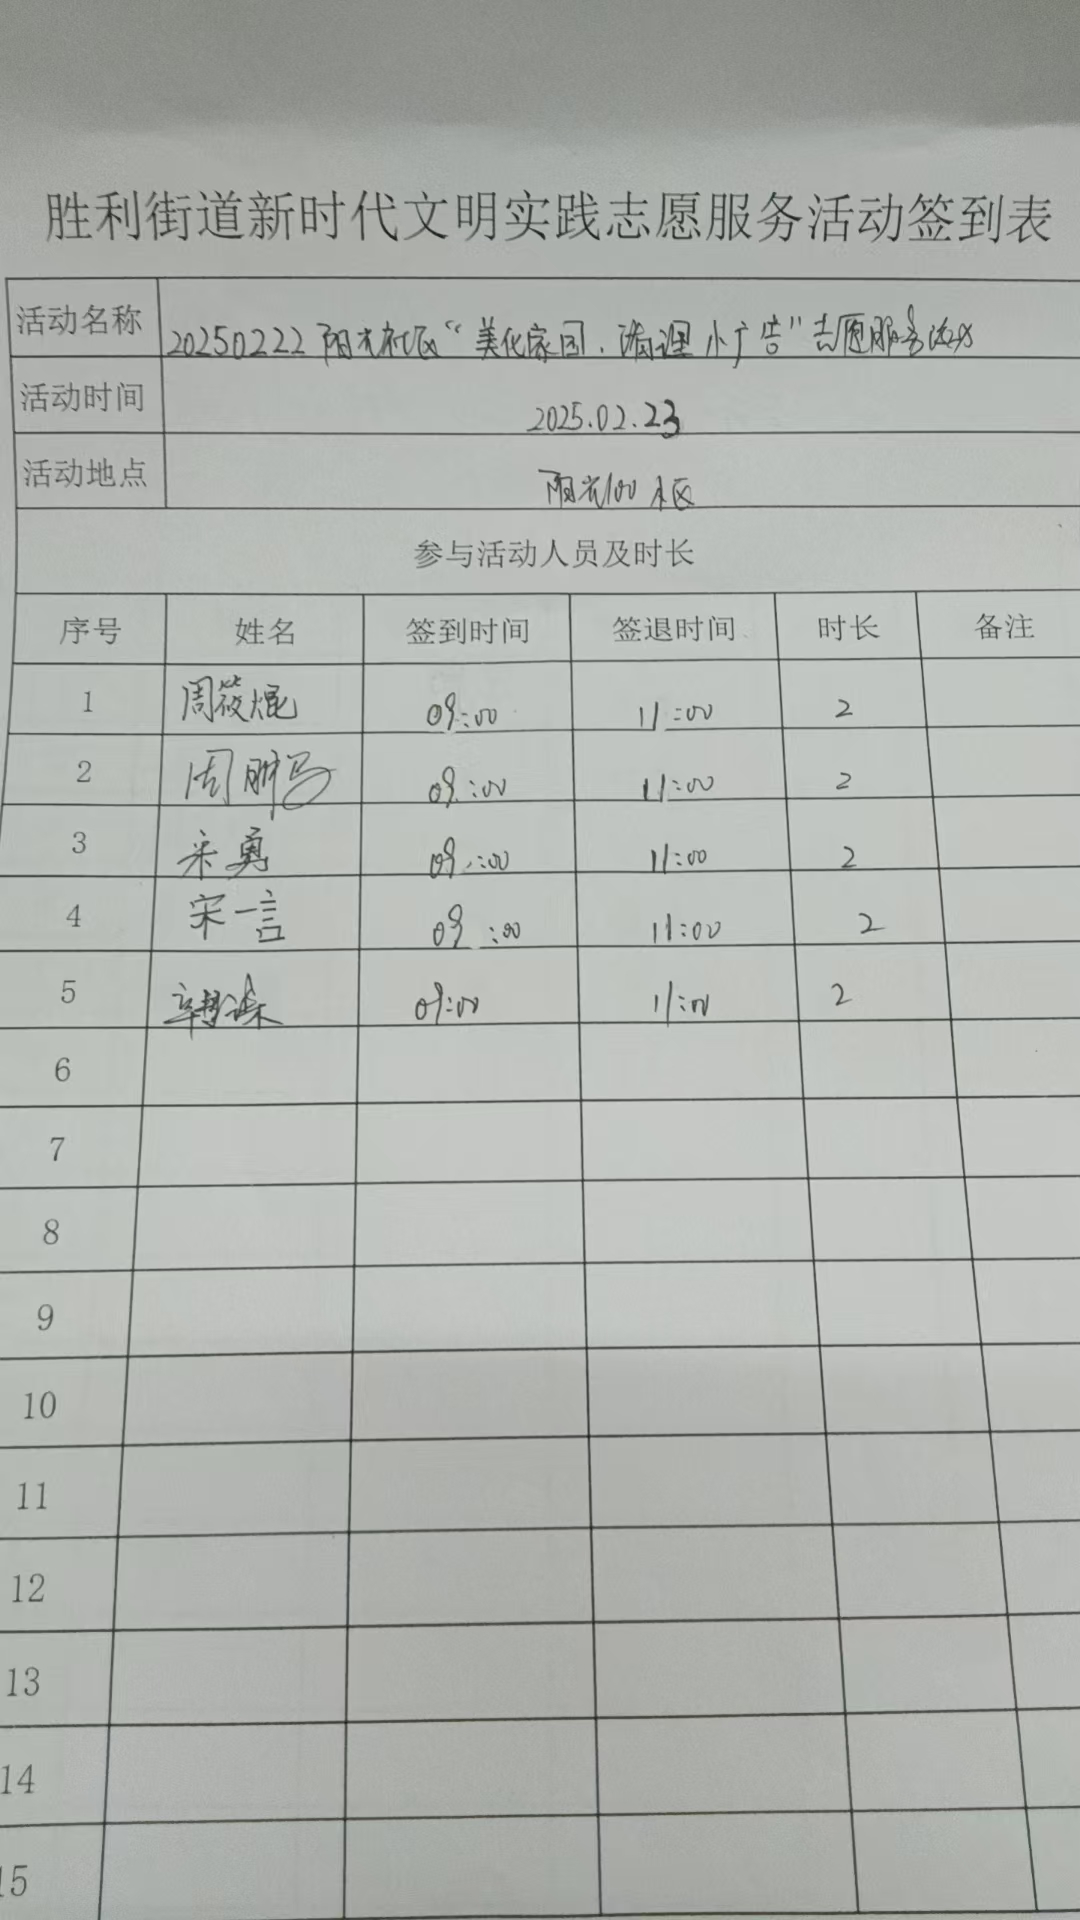 胜利街道新时代文明实践志愿服务活动签到表
活动名称 20250222阳光社区“美化家园、清理小广告”志愿服务活动
活动时间 2025.02.23
活动地点 阳光100社区
参与活动人员及时长
序号 姓名 签到时间 签退时间 时长 备注
1 周筱焜 09:00 11:00 2
2 周 09:00 11:00 2
3 宋勇 09:00 11:00 2
4 宋一言 09:00 11:00 2
5 09:00 11:00 2
6
7
8
9
10
11
12
13
14
15